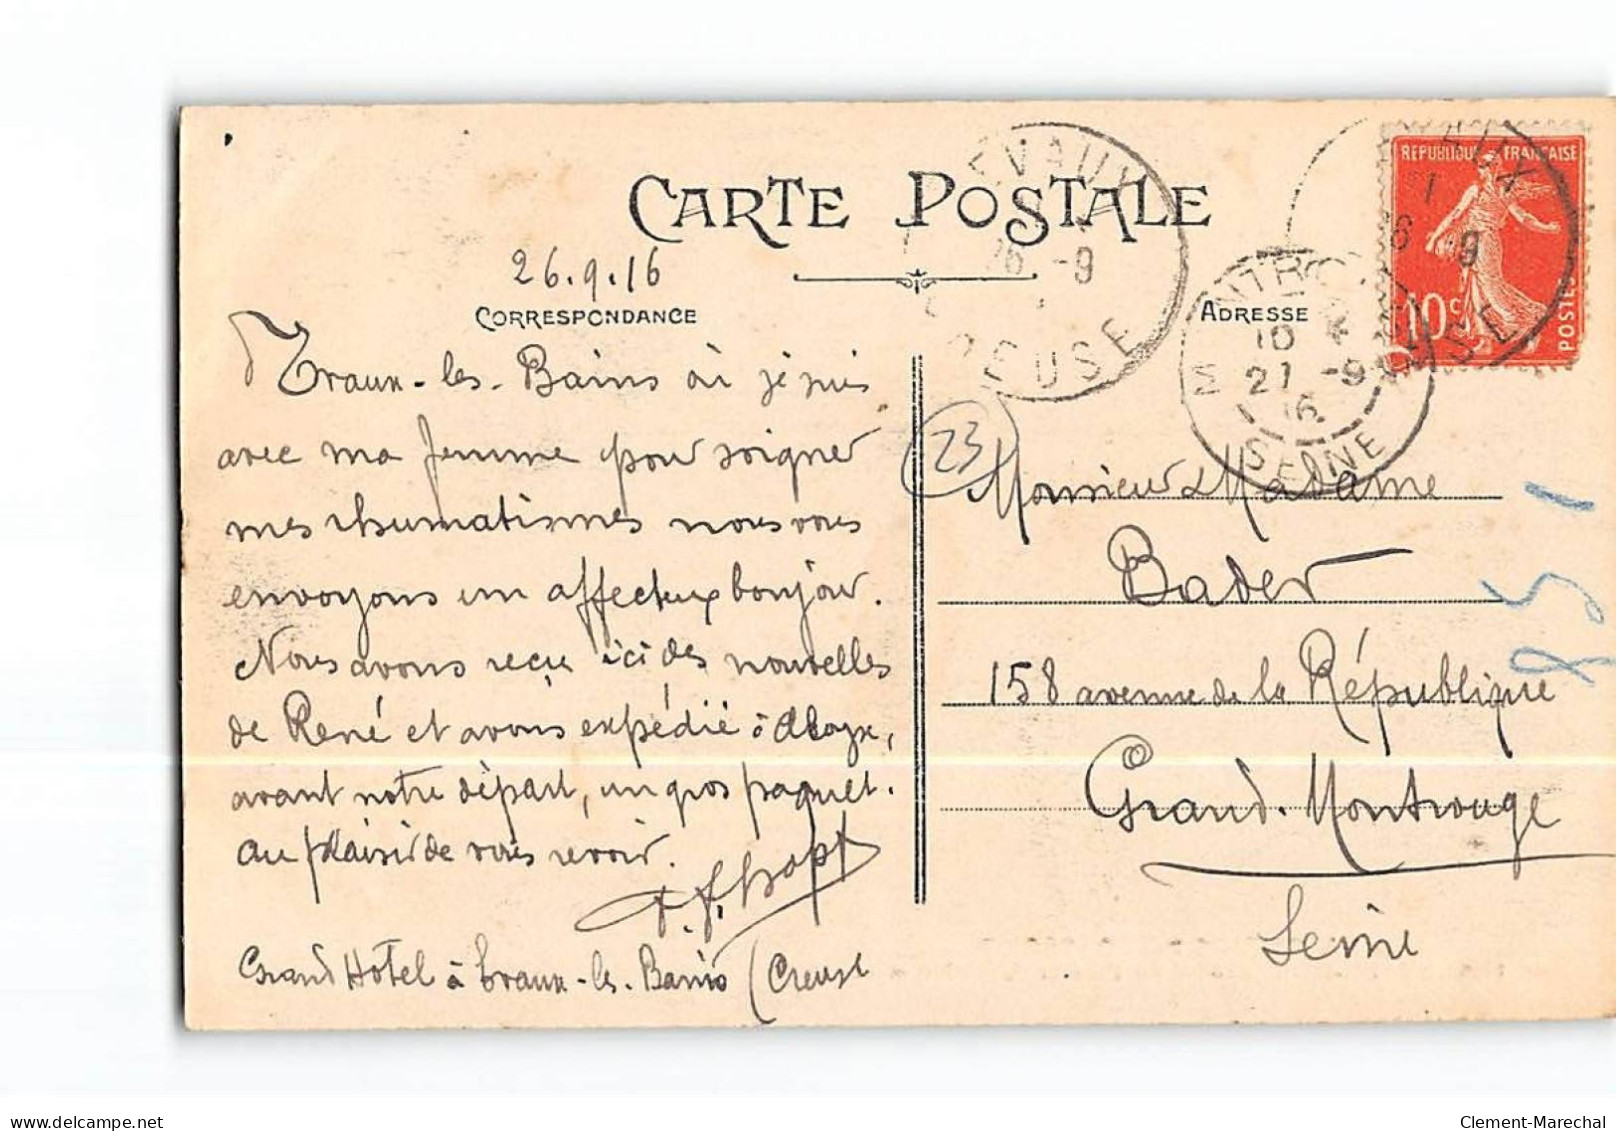 CARTE POSTALE
26.9.16
CORRESPONDANCE
Evaux-les-Bains où je suis
avec ma femme pour soigner
mes rhumatismes nous vous
envoyons un affectueux bonjour.
Nous avons reçu ici des nouvelles
de René et avons expédié à
avant notre départ, un gros paquet.
au plaisir de vous revoir.
Grand Hôtel à Evaux-les-Bains (Creuse
EVAUX
16 -9
CREUSE
ADRESSE
REPUBLIQUE FRANÇAISE
10c
POSTES
EVAUX
16 -9
CREUSE
MONTROUGE
10
27 -9
16
SEINE
23
Monsieur & Madame
Bader
158 avenue de la République
Grand-Montrouge
Seine
851
delcampe.net
Clement-Marechal